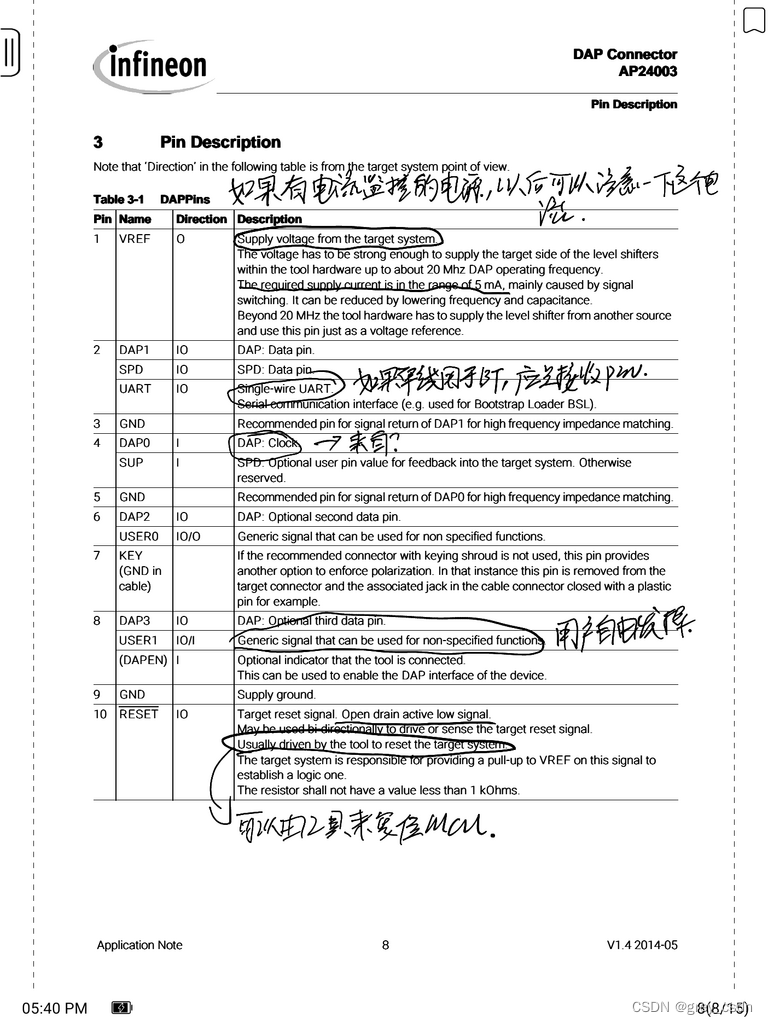 infineon
DAP Connector
AP24003
Pin Description
3 Pin Description
Note that 'Direction' in the following table is from the target system point of view.
如果有电流监控的电源,以后可以注意一下这个电
流.
Table 3-1 DAPPins
Pin Name Direction Description
1 VREF O Supply voltage from the target system.
The voltage has to be strong enough to supply the target side of the level shifters
within the tool hardware up to about 20 Mhz DAP operating frequency.
The required supply current is in the range of 5 mA, mainly caused by signal
switching. It can be reduced by lowering frequency and capacitance.
Beyond 20 MHz the tool hardware has to supply the level shifter from another source
and use this pin just as a voltage reference.
2 DAP1 IO DAP: Data pin.
SPD IO SPD: Data pin
UART IO Single-wire UART. 如果单线用于BT,应当接收pin.
Serial communication interface (e.g. used for Bootstrap Loader BSL).
3 GND Recommended pin for signal return of DAP1 for high frequency impedance matching.
4 DAP0 I DAP: Clock → 来自?
SUP I SPD: Optional user pin value for feedback into the target system. Otherwise
reserved.
5 GND Recommended pin for signal return of DAP0 for high frequency impedance matching.
6 DAP2 IO DAP: Optional second data pin.
USER0 IO/O Generic signal that can be used for non specified functions.
7 KEY If the recommended connector with keying shroud is not used, this pin provides
(GND in another option to enforce polarization. In that instance this pin is removed from the
cable) target connector and the associated jack in the cable connector closed with a plastic
pin for example.
8 DAP3 IO DAP: Optional third data pin.
USER1 IO/I Generic signal that can be used for non-specified functions 用户自由发挥.
(DAPEN) I Optional indicator that the tool is connected.
This can be used to enable the DAP interface of the device.
9 GND Supply ground.
10 RESET IO Target reset signal. Open drain active low signal.
May be used bi-directionally to drive or sense the target reset signal.
Usually driven by the tool to reset the target system.
The target system is responsible for providing a pull-up to VREF on this signal to
establish a logic one.
The resistor shall not have a value less than 1 kOhms.
可以由工具来复位MCU.
Application Note 8 V1.4 2014-05
05:40 PM 8(8/15)